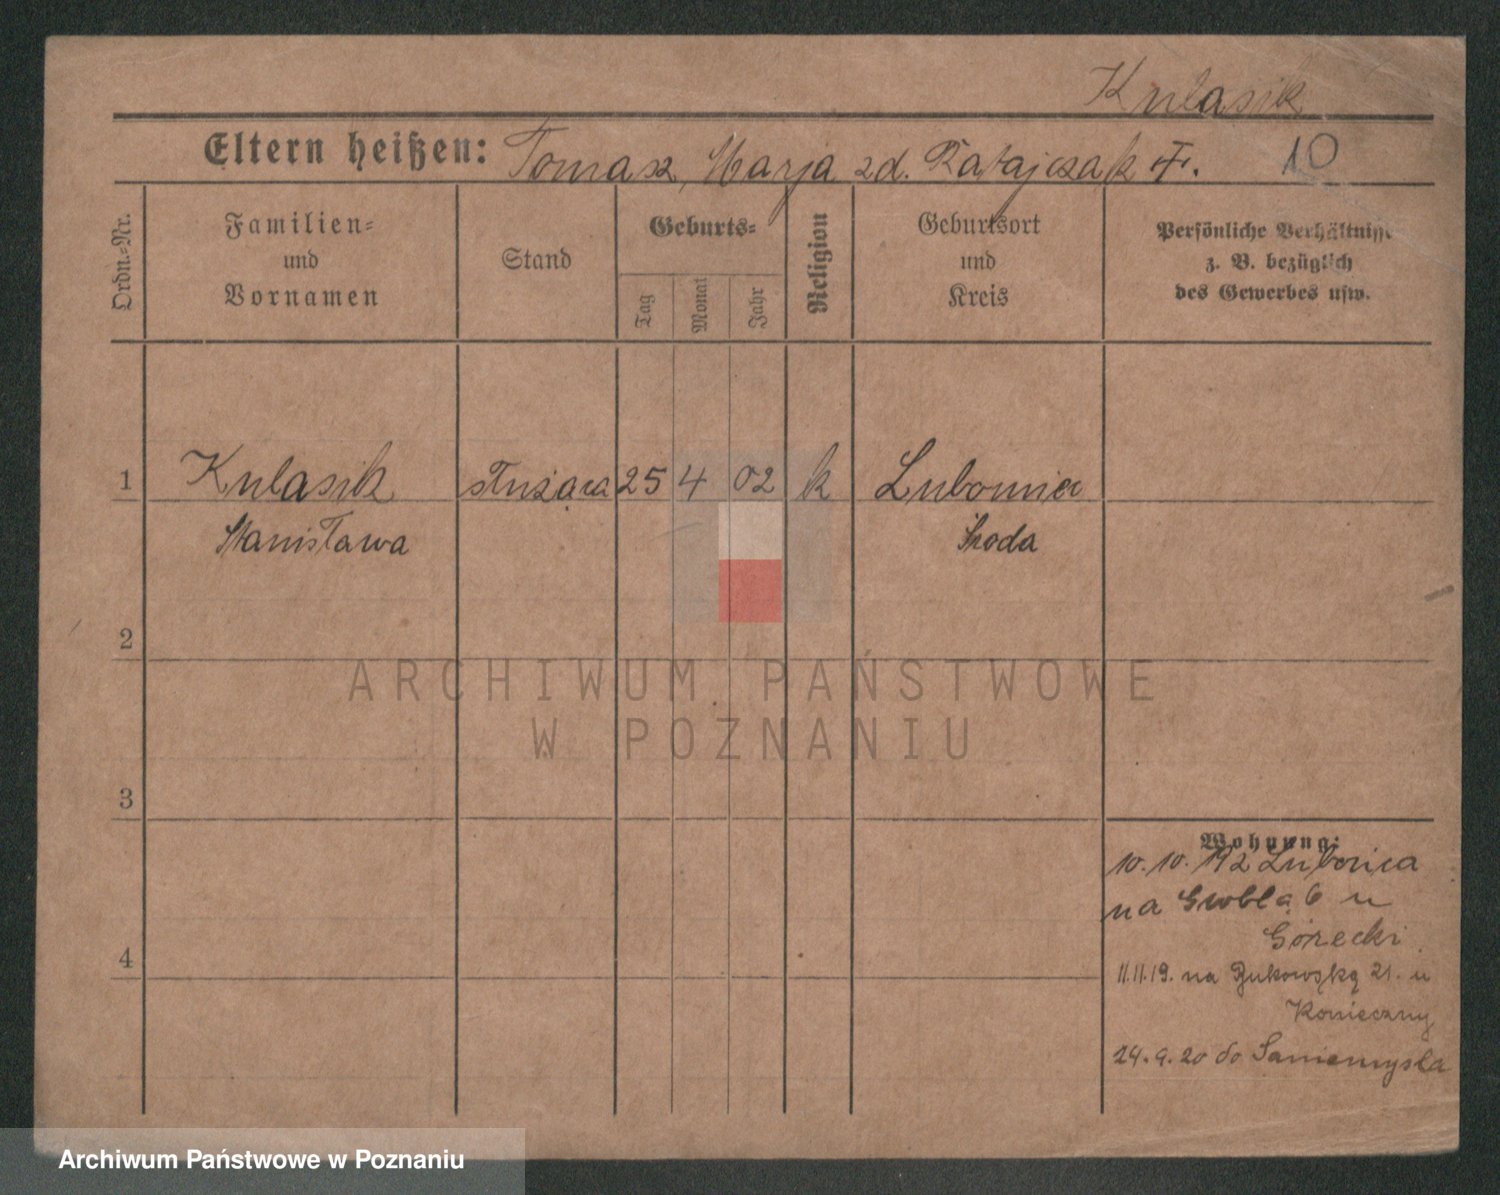 Kulasik
Eltern heißen: Tomasz, Marja zd. Ratajczak
10
Ordn.-Nr.
Familien-
und
Vornamen
Stand
Geburts-
Tag
Monat
Jahr
Religion
Geburtsort
und
Kreis
Persönliche Verhältnisse
z. B. bezüglich
des Gewerbes usw.
1 Kulasik służąca 25 4 02 k
Stanisława Środa
2
ARCHIWUM PAŃSTWOWE
W POZNANIU
3
Wohnung:
10. 10.
na Groblą 6 u
Górecki
11.11.19. na Bukowską 21. u
Konieczny
24.9.20 do Saniemyśla
4
Archiwum Państwowe w Poznaniu